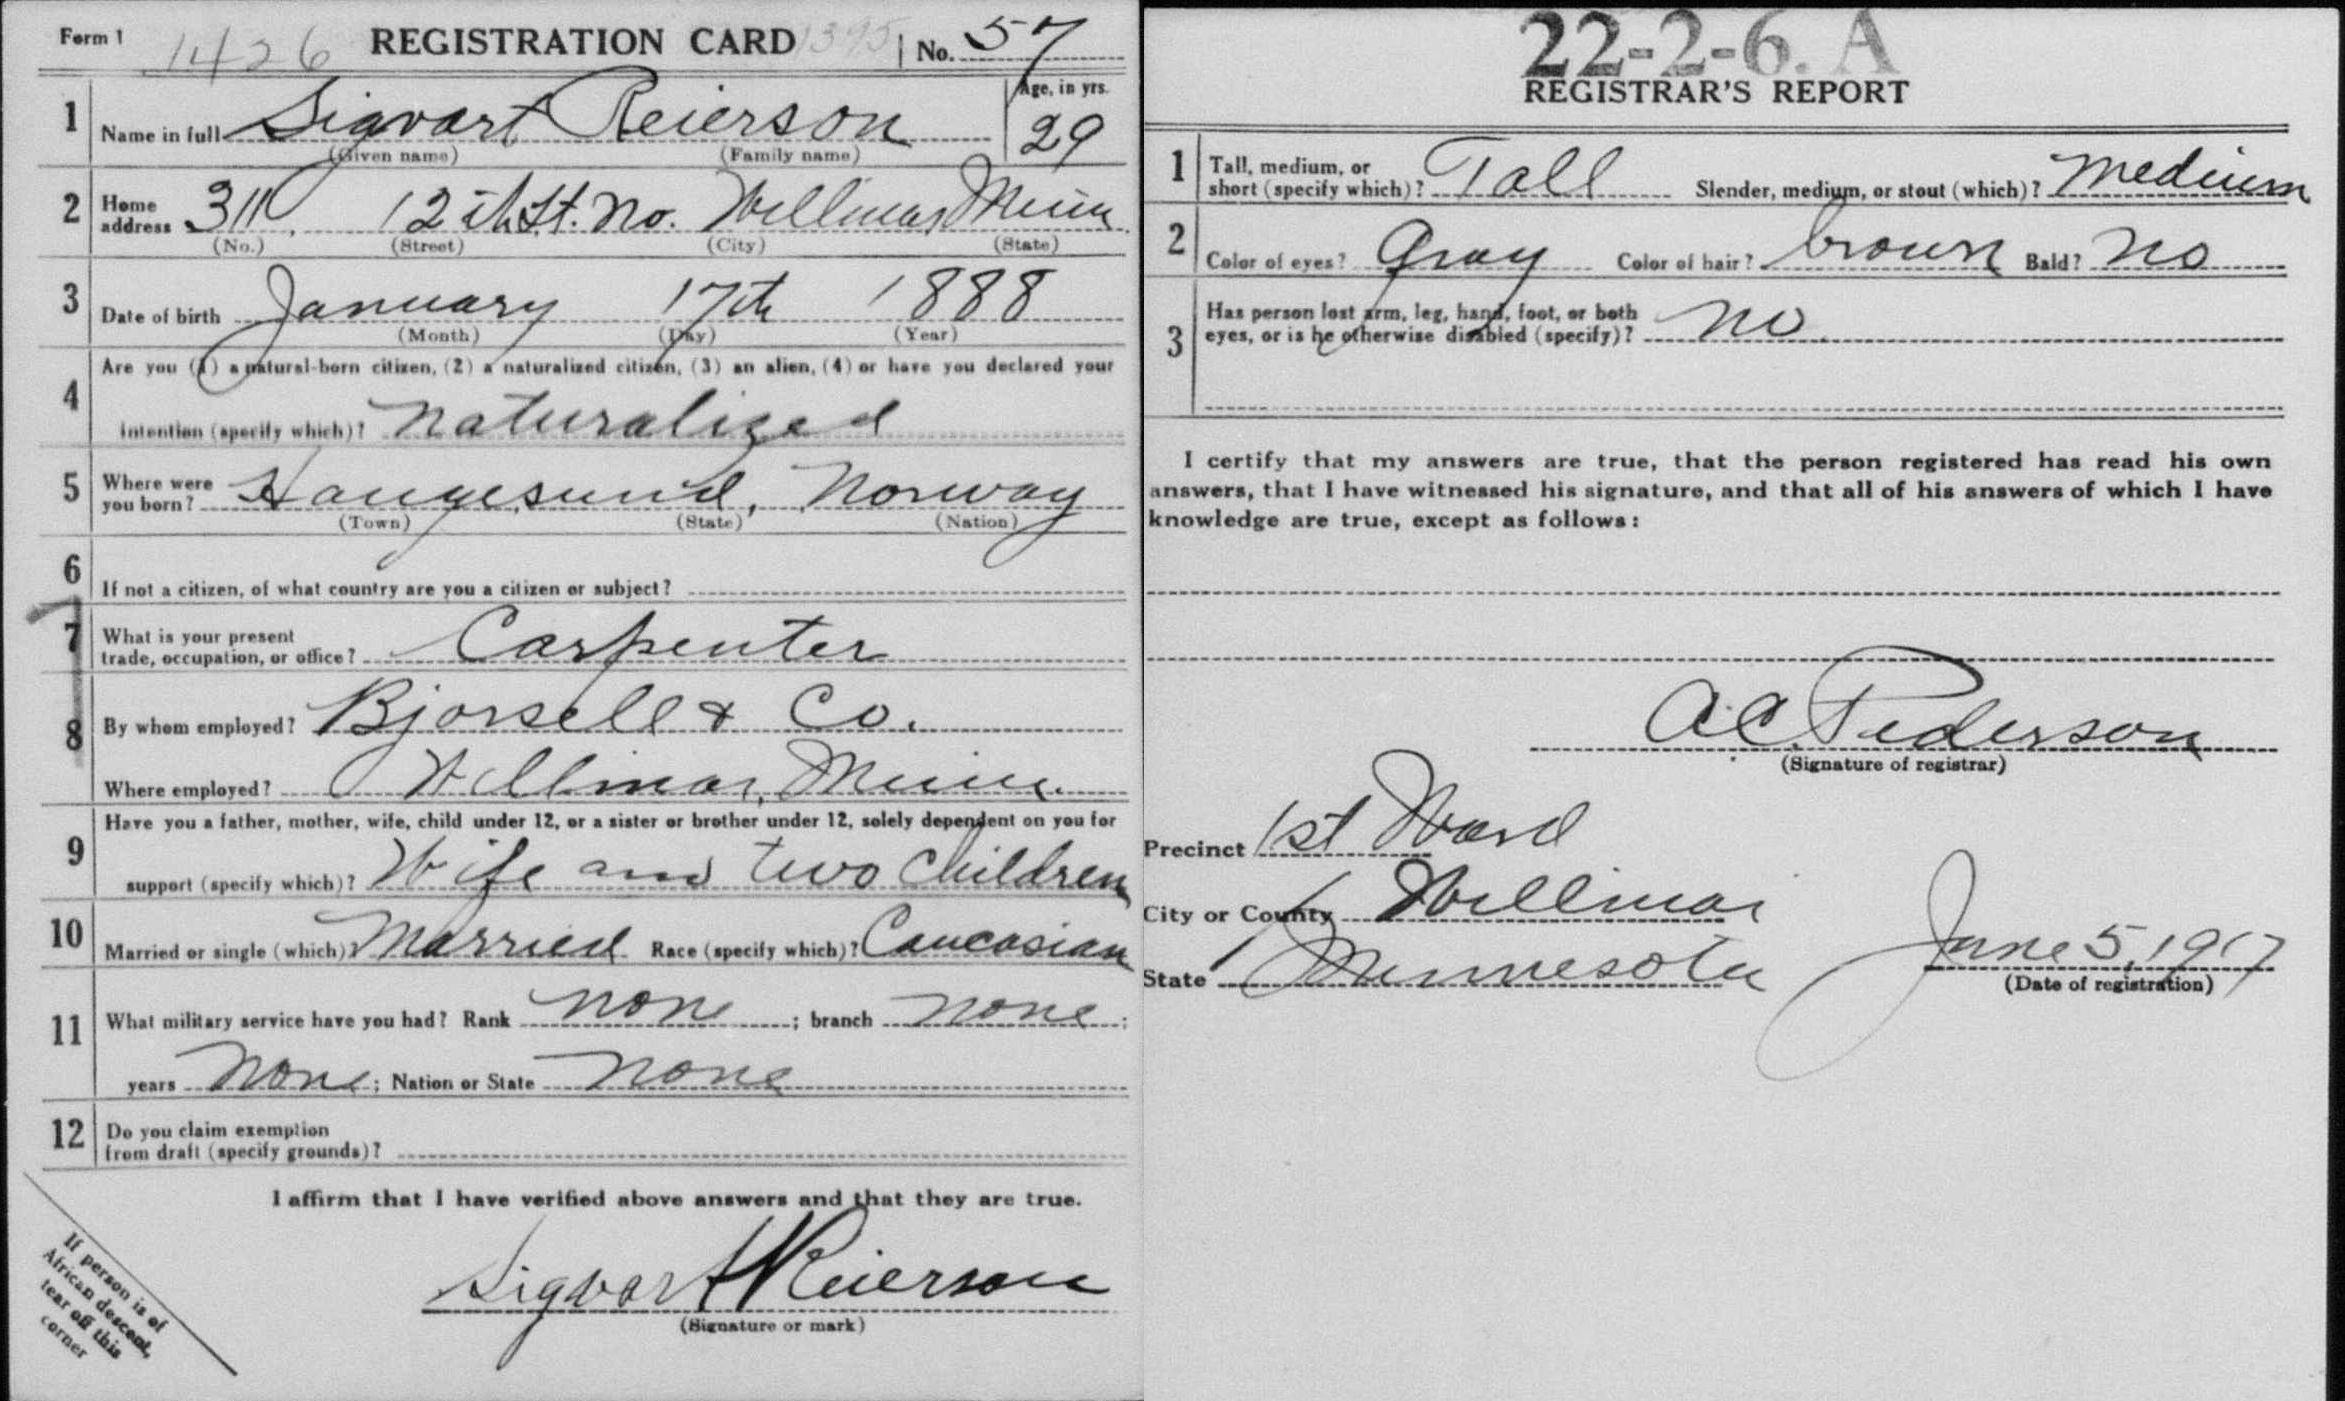 Form 1 1426 REGISTRATION CARD 1395 No. 57
1 Name in full Sigvart Reierson Age, in yrs. 29
(Given name) (Family name)
2 Home address 311 12th St. No. Willmar Minn
(No.) (Street) (City) (State)
3 Date of birth January 17th 1888
(Month) (Day) (Year)
4 Are you (1) a natural-born citizen, (2) a naturalized citizen, (3) an alien, (4) or have you declared your
intention (specify which)? Naturalized
5 Where were you born? Haugesund, Norway
(Town) (State) (Nation)
6 If not a citizen, of what country are you a citizen or subject?
7 What is your present
trade, occupation, or office? Carpenter
8 By whom employed? Bjorsell & Co.
Where employed? Willmar, Minn.
9 Have you a father, mother, wife, child under 12, or a sister or brother under 12, solely dependent on you for
support (specify which)? Wife and two children
10 Married or single (which)? Married Race (specify which)? Caucasian
11 What military service have you had? Rank none ; branch none ;
years None ; Nation or State None
12 Do you claim exemption
from draft (specify grounds)?
I affirm that I have verified above answers and that they are true.
Sigvart Reierson
(Signature or mark)
If person is of
African descent,
tear off this
corner
22-2-6. A
REGISTRAR'S REPORT
1 Tall, medium, or
short (specify which)? Tall Slender, medium, or stout (which)? Medium
2 Color of eyes? Gray Color of hair? brown Bald? No
3 Has person lost arm, leg, hand, foot, or both
eyes, or is he otherwise disabled (specify)? No
I certify that my answers are true, that the person registered has read his own
answers, that I have witnessed his signature, and that all of his answers of which I have
knowledge are true, except as follows:
A.C. Pederson
(Signature of registrar)
Precinct 1st Ward
City or County Willmar
State Minnesota June 5, 1917
(Date of registration)